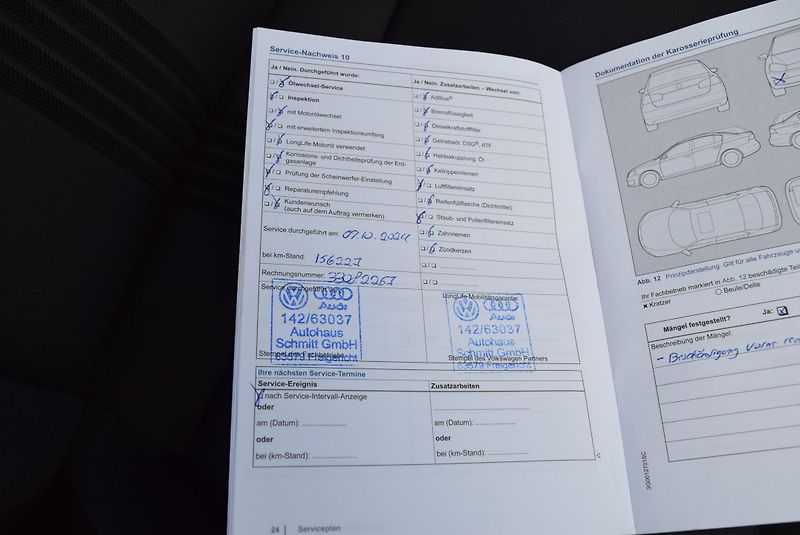 Service-Nachweis 10
Ja / Nein. Durchgeführt wurde:
Ölwechsel-Service
Inspektion
mit Motorölwechsel
mit erweitertem Inspektionsumfang
LongLife Motoröl verwendet
Korrosions- und Dichtheitsprüfung der Erd-
gasanlage
Prüfung der Scheinwerfer-Einstellung
Reparaturempfehlung
Kundenwunsch
(auch auf dem Auftrag vermerken)
Service durchgeführt am: 09.10.2024
bei km-Stand: 156227
Rechnungsnummer: 33282267
Service durchgeführt von:
Audi
142/63037
Autohaus
Schmitt GmbH
63579 Freigericht
Stempel des Fachbetriebs
Ja / Nein. Zusatzarbeiten – Wechsel von:
AdBlue®
Bremsflüssigkeit
Dieselkraftstofffilter
Getriebeöl: DSG®, ATF
Haldexkupplung: Öl
Keilrippenriemen
Luftfiltereinsatz
Reifenfüllflasche (Dichtmittel)
Staub- und Pollenfiltereinsatz
Zahnriemen
Zündkerzen
LongLife Mobilitätsgarantie:
Audi
142/63037
Autohaus
Schmitt GmbH
63579 Freigericht
Stempel des Volkswagen Partners
Ihre nächsten Service-Termine
Service-Ereignis
Zusatzarbeiten
nach Service-Intervall-Anzeige
oder
am (Datum):
am (Datum):
oder
oder
bei (km-Stand):
bei (km-Stand):
24 | Serviceplan
Dokumentation der Karosserieprüfung
Abb. 12 Prinzipdarstellung. Gilt für alle Fahrzeuge
Ihr Fachbetrieb markiert in Abb. 12 beschädigte
Kratzer
Beule/Delle
Mängel festgestellt? Ja:
Beschreibung der Mängel:
- Beschädigung vorne
3G0012701SG